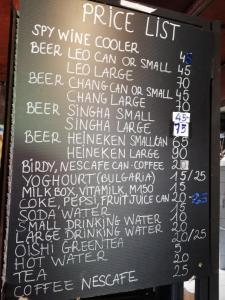 PRICE LIST
SPY WINE COOLER 45
BEER LEO CAN OR SMALL 45
LEO LARGE 70
BEER CHANG CAN OR SMALL 45
CHANG LARGE
BEER SINGHA SMALL 45
SINGHA LARGE 75
BEER HEINEKEN SMALLKAN 65
HEINEKEN LARGE 90
BIRDY, NESCAFE CAN COFFEE
YOGHOURT (BULGARIA) 15/25
MILK BOX, VITAMILK, M150 15
COKE, PEPSI, FRUIT JUICE CAN 20-25
SODA WATER
SMALL DRINKING WATER 10
LARGE DRINKING WATER 20/25
OISHI GREENTEA 20
HOT WATER 5
TEA 20
COFFEE NESCAFE 25